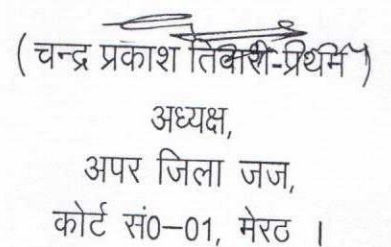 ( चन्द्र प्रकाश तिवारी-प्रथम )
अध्यक्ष,
अपर जिला जज,
कोर्ट सं0-01, मेरठ ।